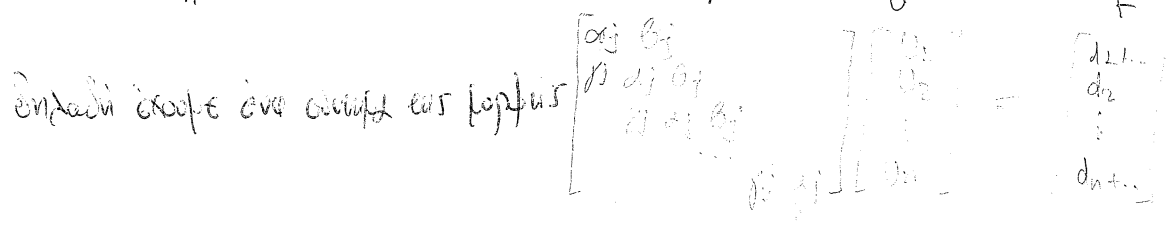 δηλαδή έχουμε ένα σύστημα της μορφής [αj βj
γj αj βj
γj αj βj
...
γj αj] [U1
U2
⋮
Un] = [d1+..
d2
⋮
dn+..]